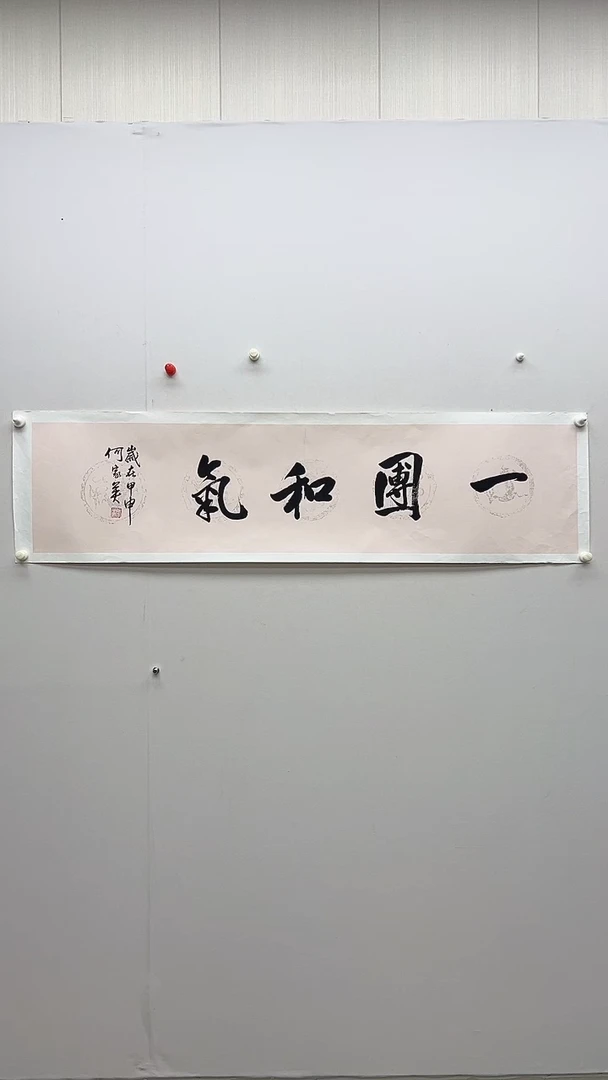 一團和氣
歲在甲申
何家英